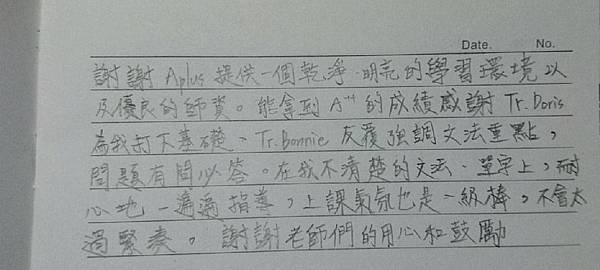 Date. No.
謝謝 Aplus 提供一個乾淨、明亮的學習環境以
及優良的師資。能拿到 A⁺⁺ 的成績感謝 Tr. Doris
為我打下基礎、Tr. Bonnie 反覆強調文法重點，
問題有問必答。在我不清楚的文法、單字上，耐
心地一遍遍指導，上課氣氛也是一級棒，不會太
過緊奏。謝謝老師們的用心和鼓勵